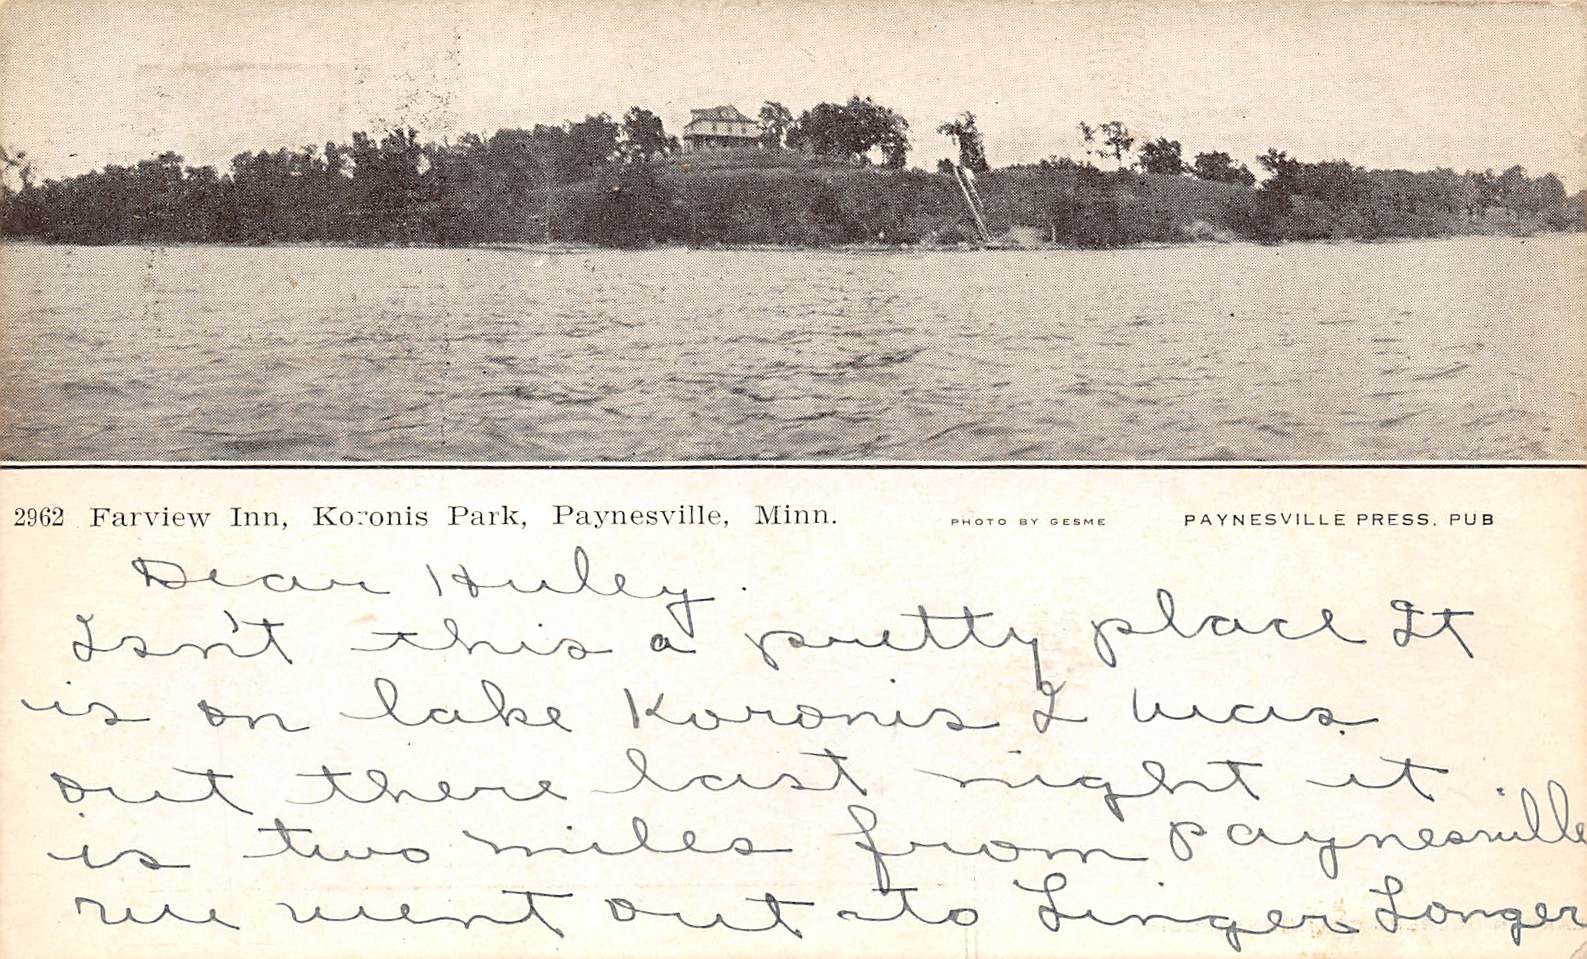 2962 Farview Inn, Koronis Park, Paynesville, Minn. PHOTO BY GESME PAYNESVILLE PRESS. PUB
Dear Huley.
Isn't this a pretty place It
is on lake Koronis I was
out there last night it
is two miles from Paynesville
we went out to Linger Longer